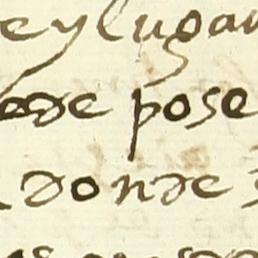 ey lugar
ede pose
donde